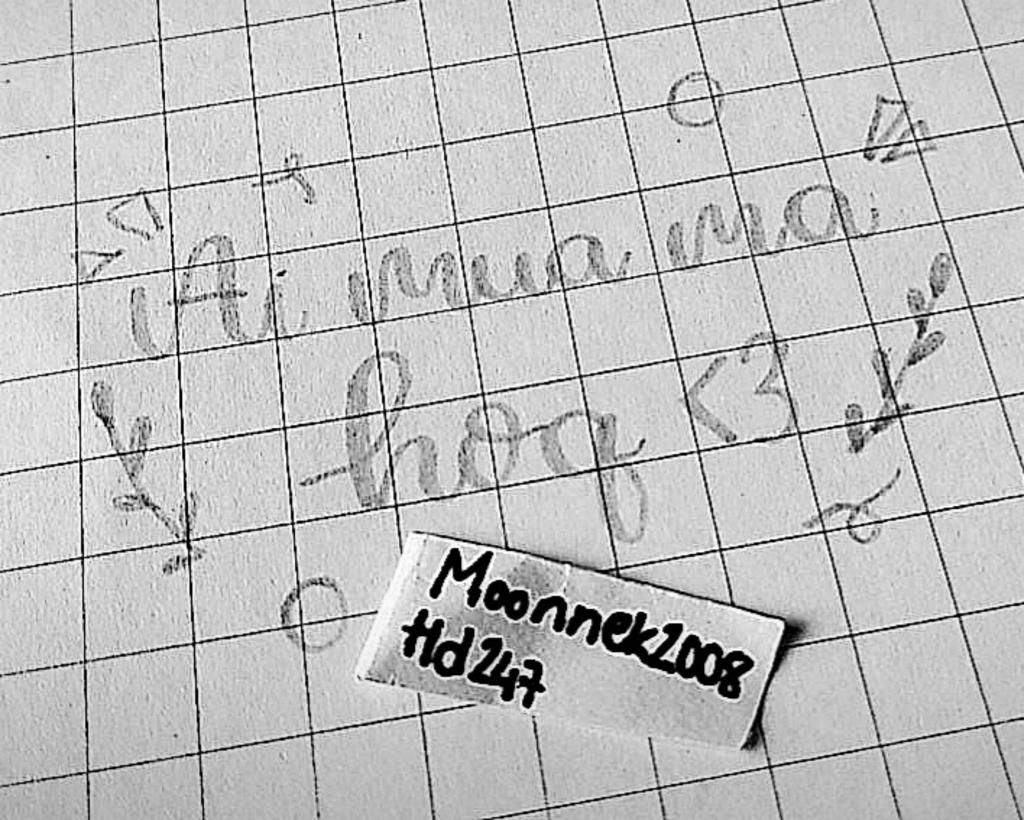 Ai mua ma
hoq <3
Moonnek2008
Hd247